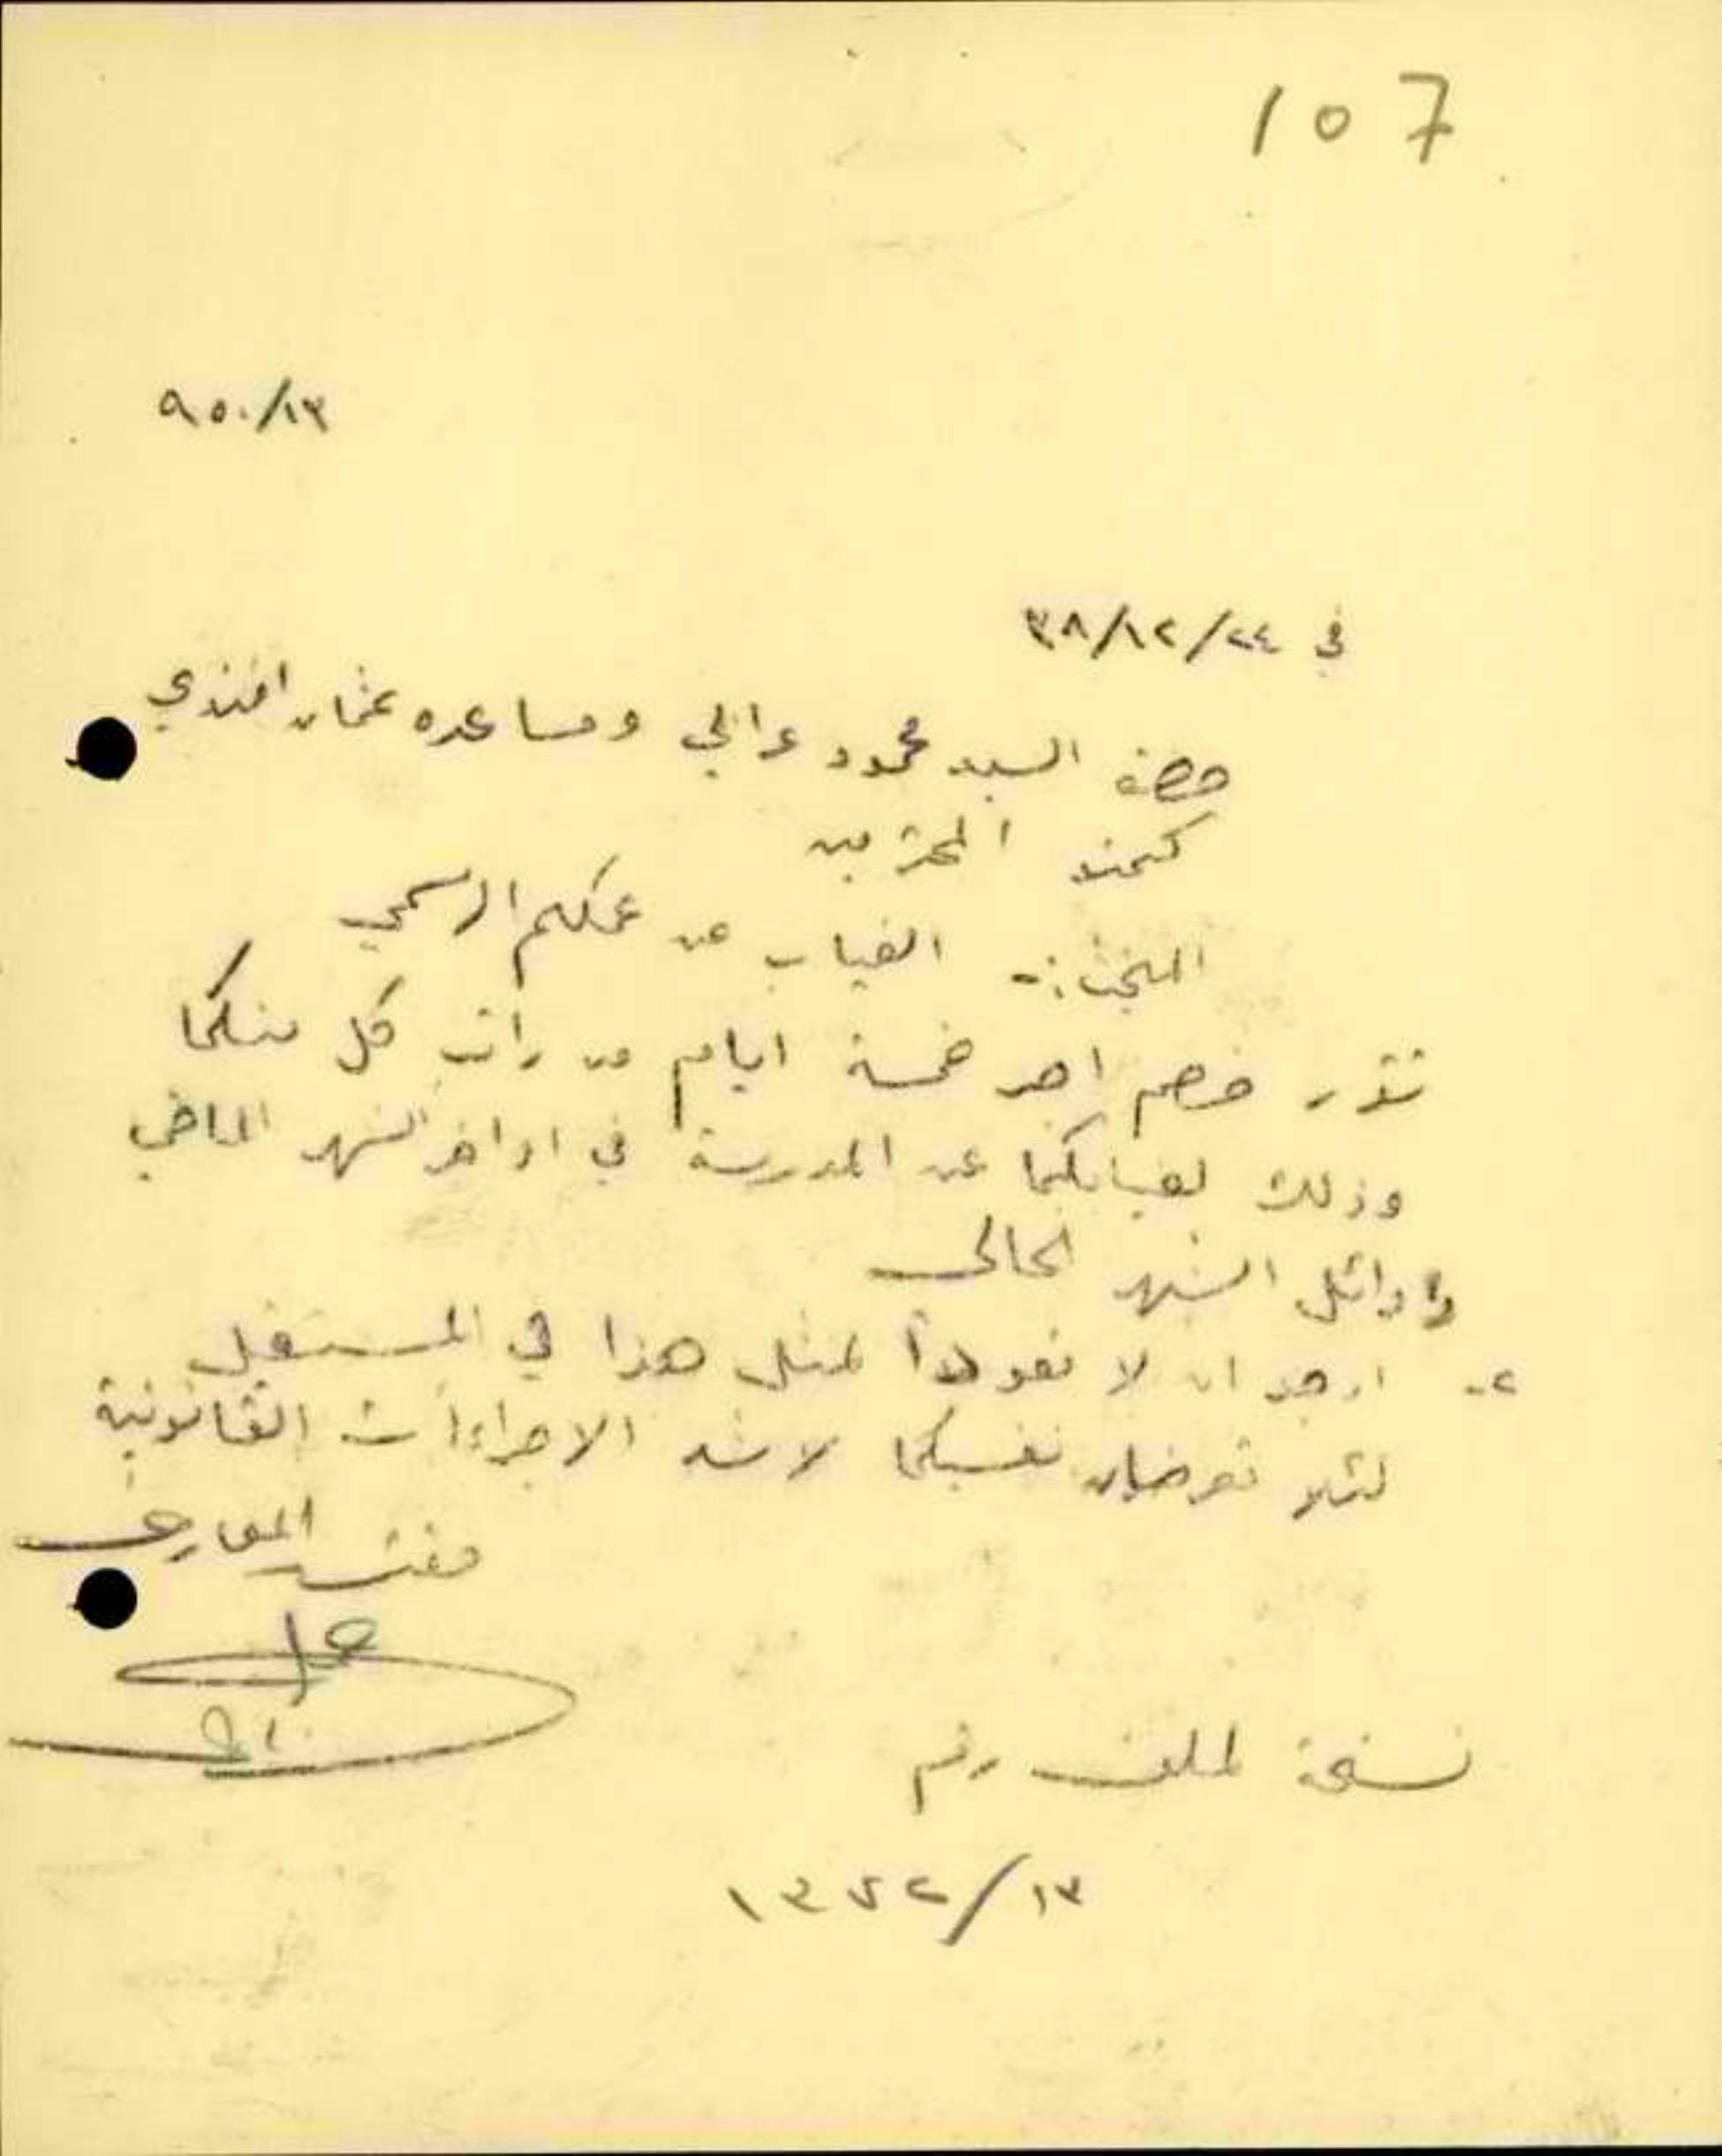 107
٩٥٠/١٣
في ٣٨/١٢/٢٤
حضرة السيد محمود عرابي ومساعده عثمان افندي
المحترمين
البحث :- الغياب عن عملكم الرسمي
تقرر خصم اجر خمسة ايام من راتب كل منكما
وذلك لغيابكما عن المدرسة في اواخر الشهر الماضي
واوائل الشهر الحالي
٢- ارجو ان لا تعودا لمثل هذا في المستقبل
لئلا تعرضان نفسيكما لاشد الاجراءات القانونية
مفتش المعارف
نسخة لملف رقم
١٣٧٢/١٣